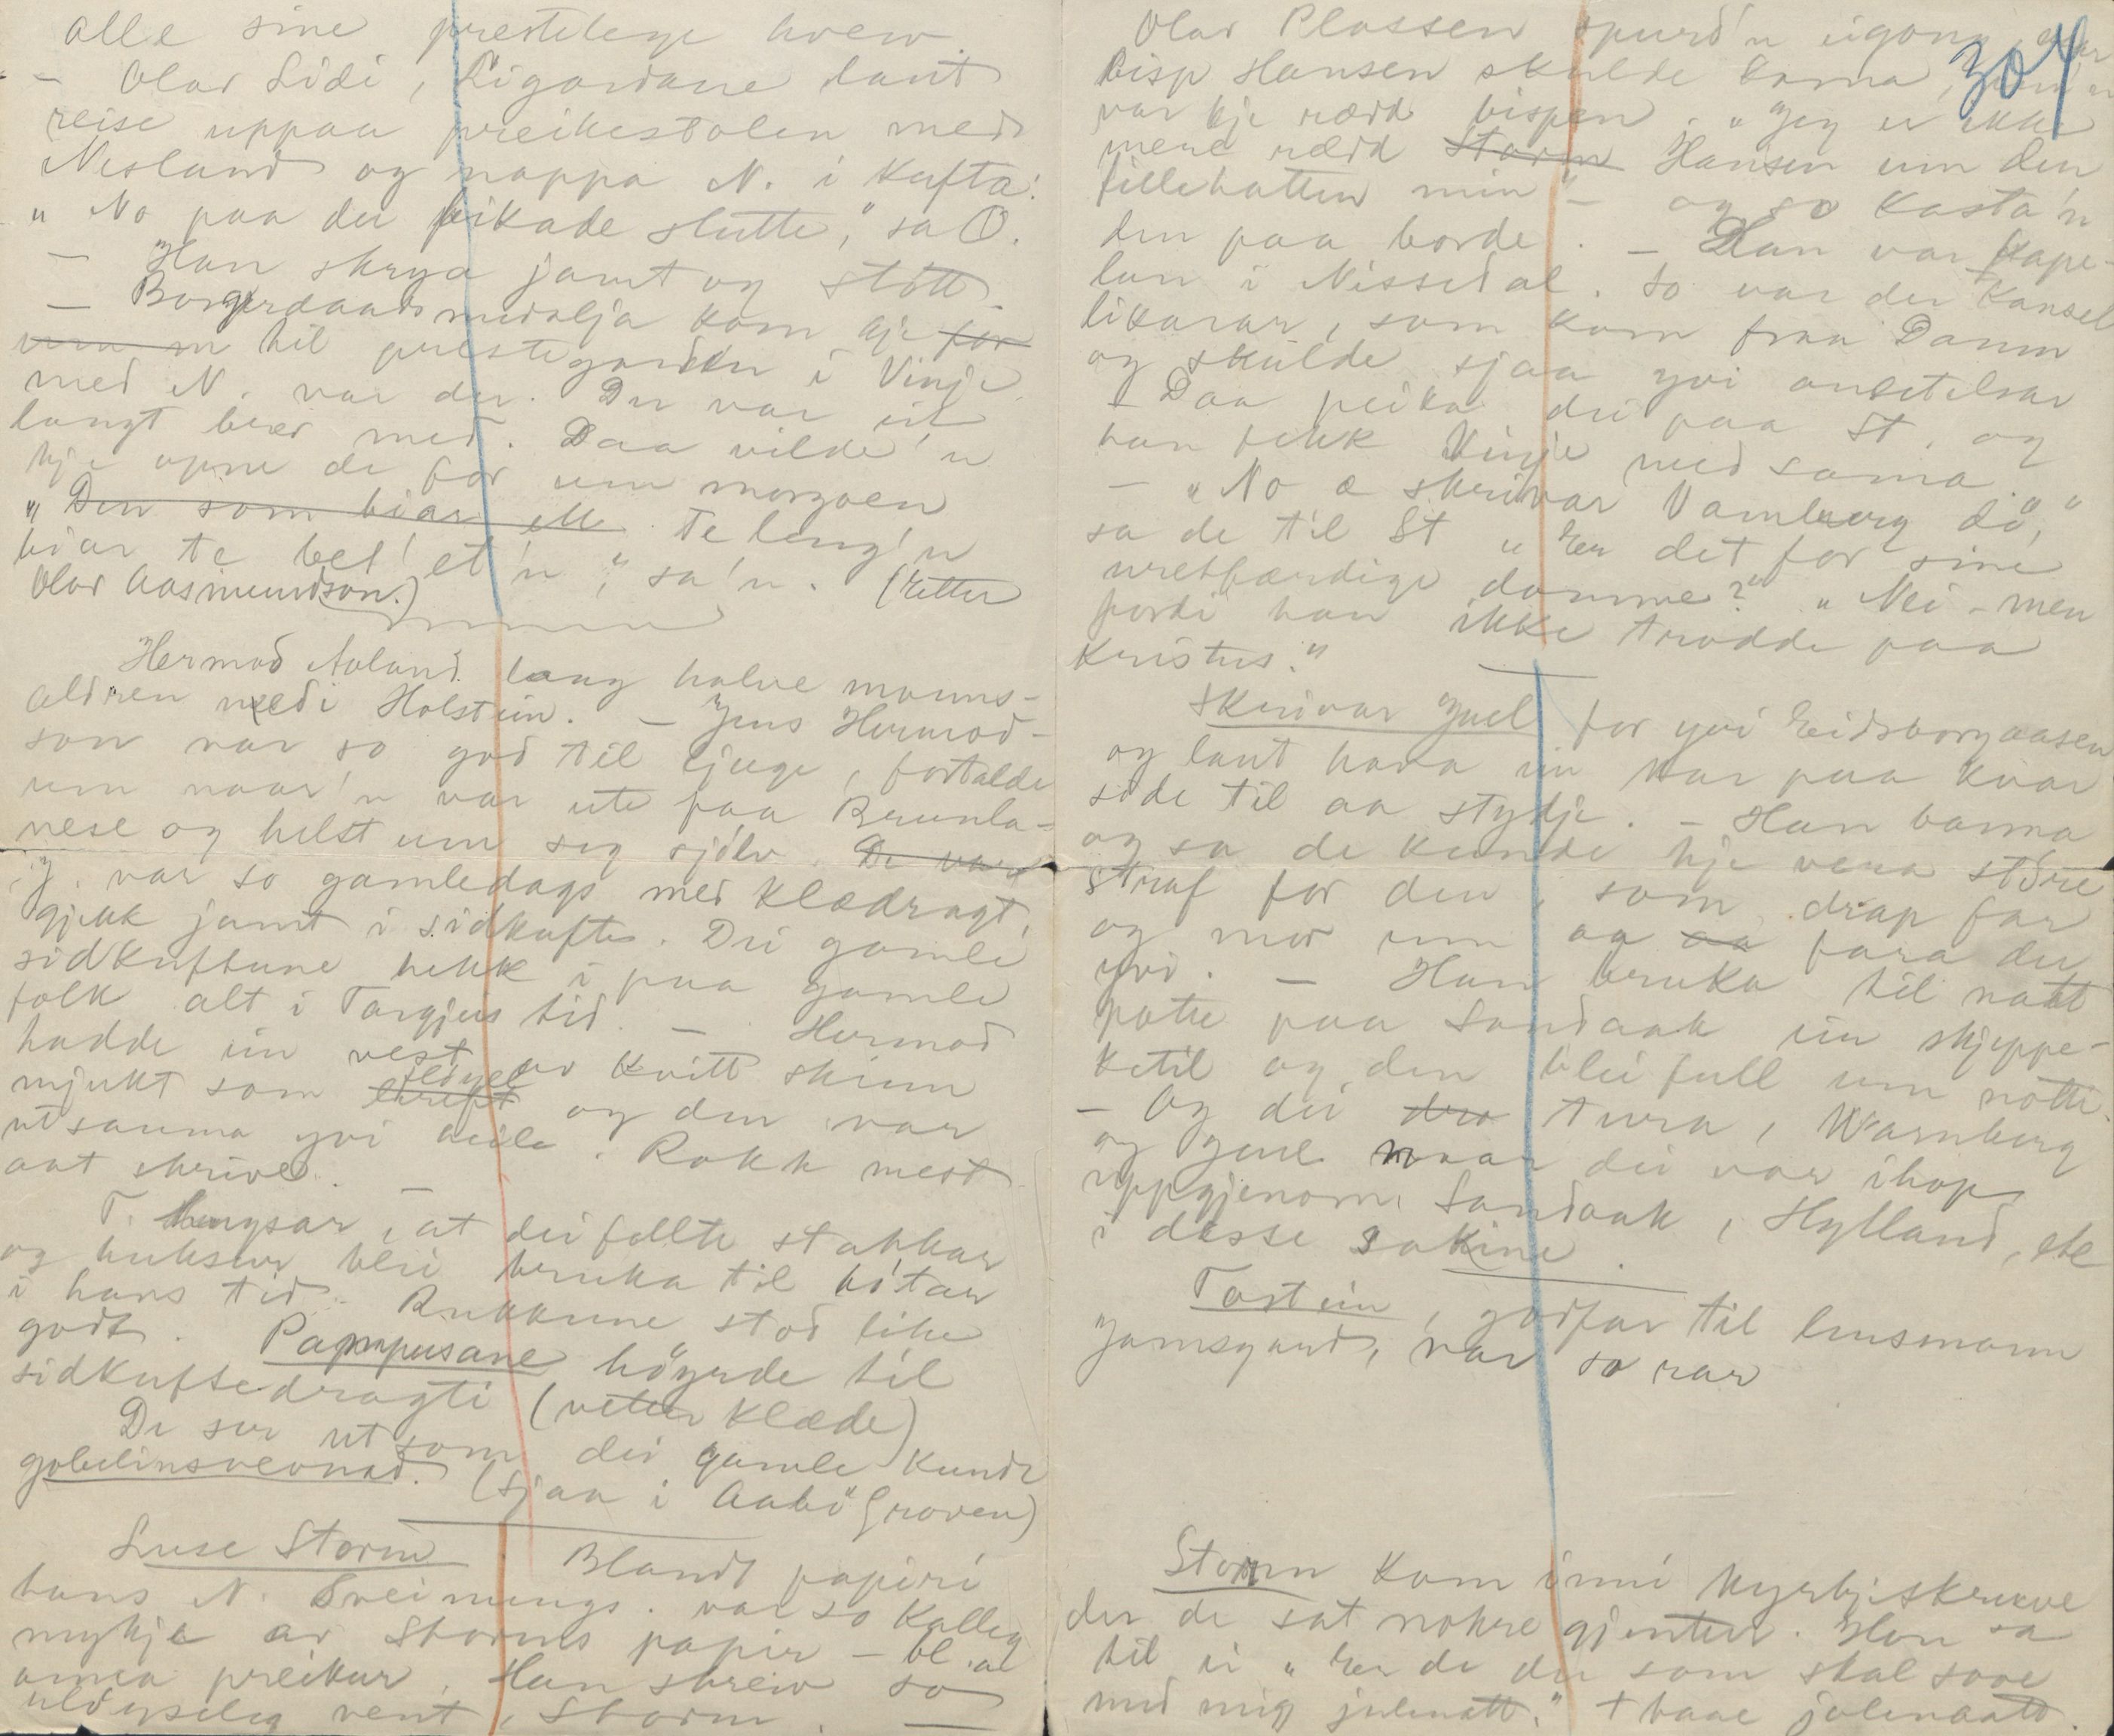 alle sine prestelege hverv.
– Olav Lidi, Ligardane laut
reise uppaa preikestolen med
Nesland og nappa N. i kufta:
"No paa du slutte," sa O.
– Han skrya jamt og stött.
– Borgerdaadsmedalja kom kje for
til prestegarden i Vinje
med N. var der. Der var eit
langt brev med. Daa vilde 'n
kje opne de för um morgoen
"Den som biar ell te leng 'n
biar te bel' et 'n," sa 'n. (Etter
Olav Aasmundson.)
Hermod Aaland laag halve manns-
aldren nedi Holstein. – Jens Hermod-
son var so god til ljuge, fortalde
um naar 'n var ute paa Brunla-
nese og helst um seg sjölv. De var
J. var so gamledags med klædragt,
gjekk jamt i sidkufte. Dei gamle
sidkuftune hekk i paa gamle
folk alt i Targjeis tid. – Hermod
hadde ein vest av kvitt skinn
mjukt som flöyel og den var
utsauma yvi heile. Rokk mest
aat skrive.
T. hugsar, at dei fellte stakkar
og buksur blei bruka til bötar
i hans tid. Rukkune stod like
godt. Pampusane höyrde til
sidkuftedragti ( klæde)
De ser ut som dei gamle kunde
gobelinsvevnad. (Sjaa i Aabö Groven)
Luse Storm Blandt papiri
hans N. Sveinungs. var so kalleg
mykje av Storms papir – bl. a
annea preikur. Han skreiv so
uldyseleg vent, Storm. –
304
Olav Plassen spurd 'n eigong,
bisp Hansen skulde koma,
var kje rædd bispen. "Jeg er ikke
mere rædd Storm Hansen um den
fillehatten min" – og so kasta 'n
den paa borde. – Han var kape-
lan i Nissedal. So var der kansel
likarar, som kom fraa Danm
og skulde sjaa yvi ansetelsar
– Daa peika dei paa St. og
han fekk Vinje med sama.
– "No æ skrivar Vamberg dö,"
sa de til St "Er det for sine
uretfærdige domme?" "Nei – men
fordi han ikke trodde paa
Kristus."
Skrivar Juel for yvi Eidsborgaasen
og laut hava ein kar paa kvar
side til aa stydje. – Han banna
og sa de kunde kje vera störe
straf for den, som drap far
og mor um aa aa fara der
yvi. – Han bruka til natt
potte paa Sandaak ein skjeppe-
ketil og den blei full um notti.
– Og dei dro tura, Warnberg
og Juel naar dei var ihop
uppgjenom Sandaak, Hylland, etc
i desse sakine.
Tostein, godfar til lensmann
Jamsgard, var so rar
Storm kom inni kyrkjeskruve
der de sat nokre gjentur. Han sa
til ei "Er de du som skal sove
med mig julenatt." + haae julenatt.